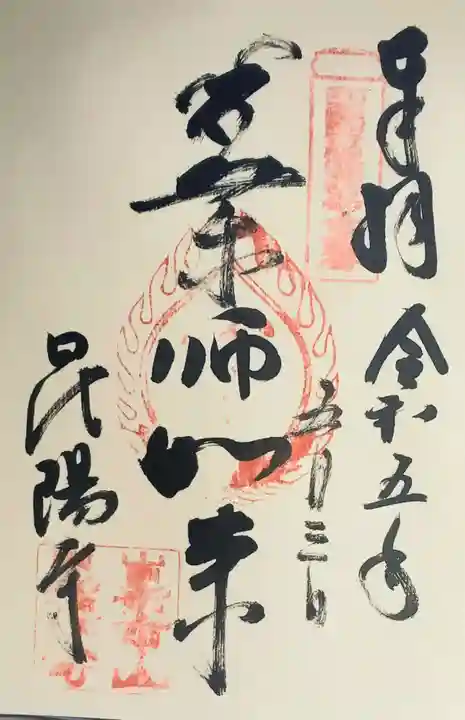 奉拝
令和五年
五月三日
薬師如来
昆陽寺